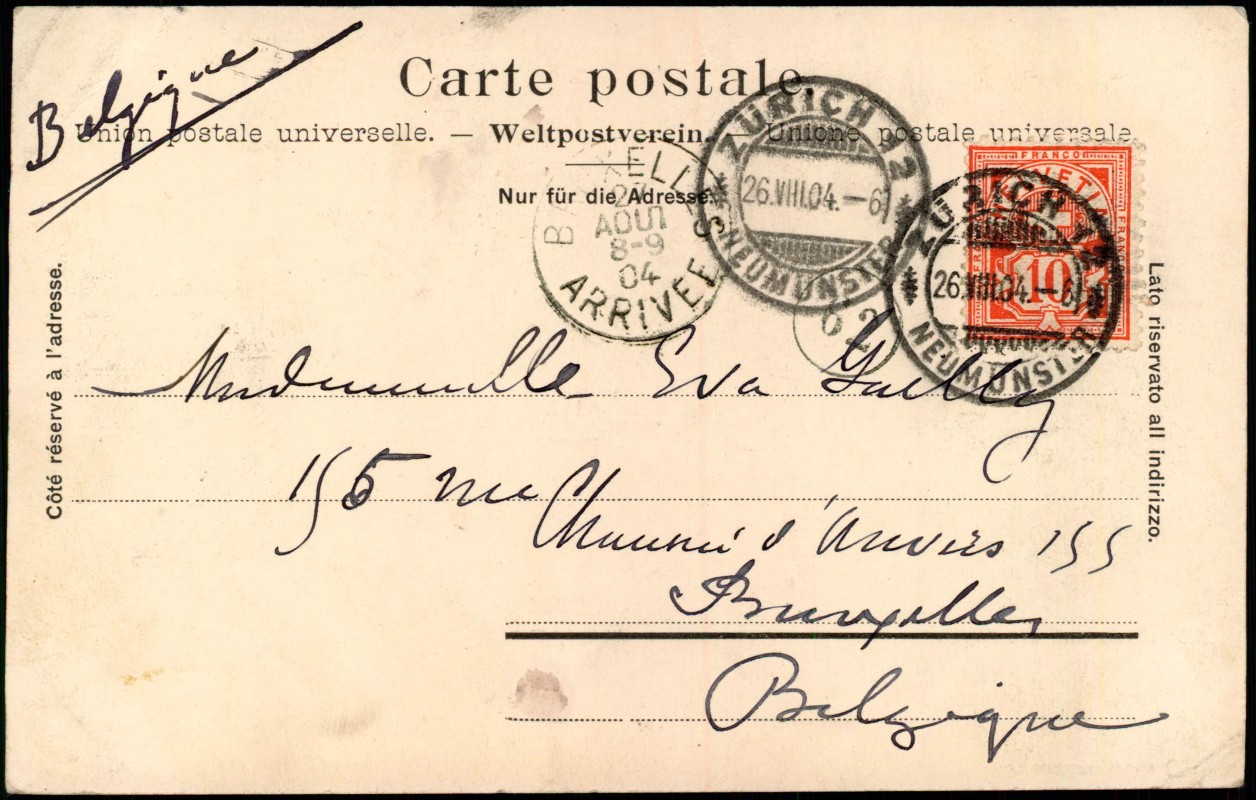 Belgique
Carte postale.
Union postale universelle. — Weltpostverein. — Unione postale universale
Nur für die Adresse.
BRUXELLES
27
AOUT
8-9
04
ARRIVÉE
ZÜRICH 12
26.VIII.04.–6
NEUMÜNSTER
FRANCO
HELVETIA
FRANCO
10
ZÜRICH 12
26.VIII.04.–6
NEUMÜNSTER
Côté réservé à l'adresse.
Lato riservato all indirizzo.
Mademoiselle Eva
155 rue
Chaussée d'Anvers 155
Bruxelles
Belgique